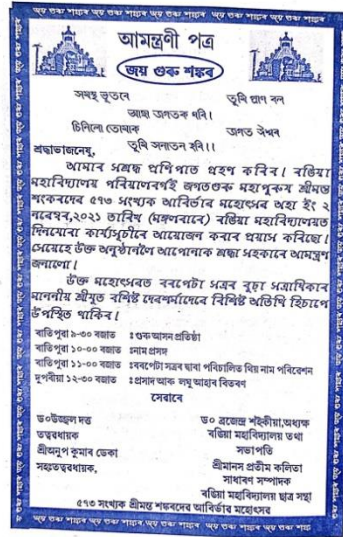 আমন্ত্ৰণী পত্ৰ
জয় গুৰু শঙ্কৰ
সমস্ত ভূতৰে তুমি প্ৰাণ বন্ধু
আত্মা জগতক ধৰি।
চিনিলো তোমাক জগত ঈশ্বৰ
তুমি সনাতন হৰি।।
শ্ৰদ্ধাভাজনেষু,
আমাৰ সশ্ৰদ্ধ প্ৰণিপাত গ্ৰহণ কৰিব। ৰঙিয়া
মহাবিদ্যালয় পৰিয়ালবৰ্গই জগতগুৰু মহাপুৰুষ শ্ৰীমন্ত
শংকৰদেৱৰ ৫৭৩ সংখ্যক আবিৰ্ভাৱ মহোৎসৱ অহা ইং ২
নৱেম্বৰ,২০২১ তাৰিখ (মঙ্গলবাৰে) ৰঙিয়া মহাবিদ্যালয়ত
দিনযোৰা কাৰ্য্যসূচীৰে আয়োজন কৰাৰ প্ৰয়াস কৰিছো।
সেয়েহে উক্ত অনুষ্ঠানলৈ আপোনাক শ্ৰদ্ধা সহকাৰে আমন্ত্ৰণ
জনালো।
উক্ত মহোৎসৱত বৰপেটা সত্ৰৰ বুঢ়া সত্ৰাধিকাৰ
মাননীয় শ্ৰীযুত বশিষ্ট দেৱশৰ্মাদেৱে বিশিষ্ট অতিথি হিচাপে
উপস্থিত থাকিব।
ৰাতিপুৱা ৯-৩০ বজাত :গুৰু আসন প্ৰতিষ্ঠা
ৰাতিপুৱা ১০-০০ বজাত :নাম প্ৰসঙ্গ
ৰাতিপুৱা ১১-০০ বজাত :বৰপেটা সত্ৰৰ দ্বাৰা পৰিচালিত থিয় নাম পৰিবেশন
দুপৰীয়া ১২-৩০ বজাত :প্ৰসাদ আৰু লঘু আহাৰ বিতৰণ
সেৱাৰে
ড০উজ্জ্বল দত্ত
তত্বাৱধায়ক
শ্ৰীঅনুপ কুমাৰ ডেকা
সহঃতত্বাৱধায়ক,
ড০ ব্ৰজেন্দ্ৰ শইকীয়া,অধ্যক্ষ
ৰঙিয়া মহাবিদ্যালয় তথা
সভাপতি
শ্ৰীমানস প্ৰতীম কলিতা
সাধাৰণ সম্পাদক
ৰঙিয়া মহাবিদ্যালয় ছাত্ৰ সন্থা
৫৭৩ সংখ্যক শ্ৰীমন্ত শঙ্কৰদেৱ আবিৰ্ভাৱ মহোৎসৱ